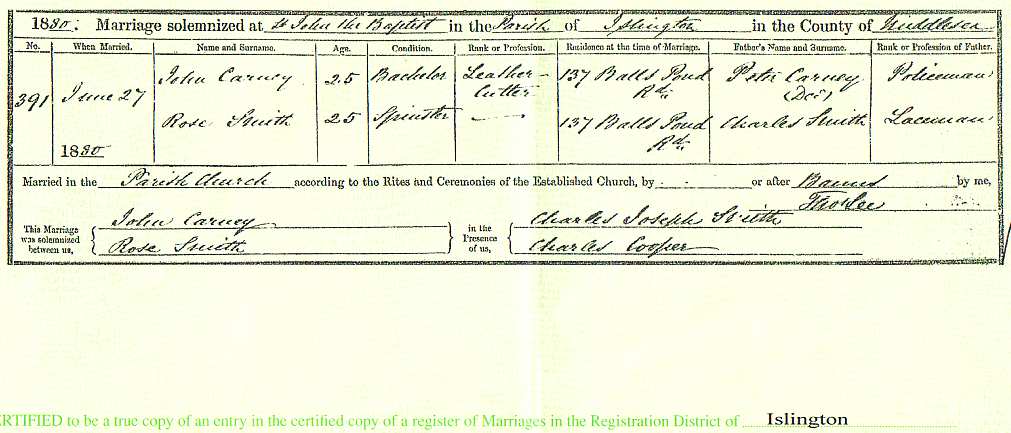 1880. Marriage solemnized at St John the Baptist in the Parish of Islington in the County of Middlesex
No. When Married. Name and Surname. Age. Condition. Rank or Profession. Residence at the time of Marriage. Father's Name and Surname. Rank or Profession of Father.
391 June 27 1880 John Carney 25 Bachelor Leather Cutter 137 Balls Pond Rd. Peter Carney (Decd) Policeman
Rose Smith 25 Spinster — 137 Balls Pond Rd. Charles Smith Laceman
Married in the Parish Church according to the Rites and Ceremonies of the Established Church, by or after Banns by me,
Thos Lee
This Marriage was solemnized between us, John Carney Rose Smith in the Presence of us, Charles Joseph Smith Charles Cooper
CERTIFIED to be a true copy of an entry in the certified copy of a register of Marriages in the Registration District of Islington